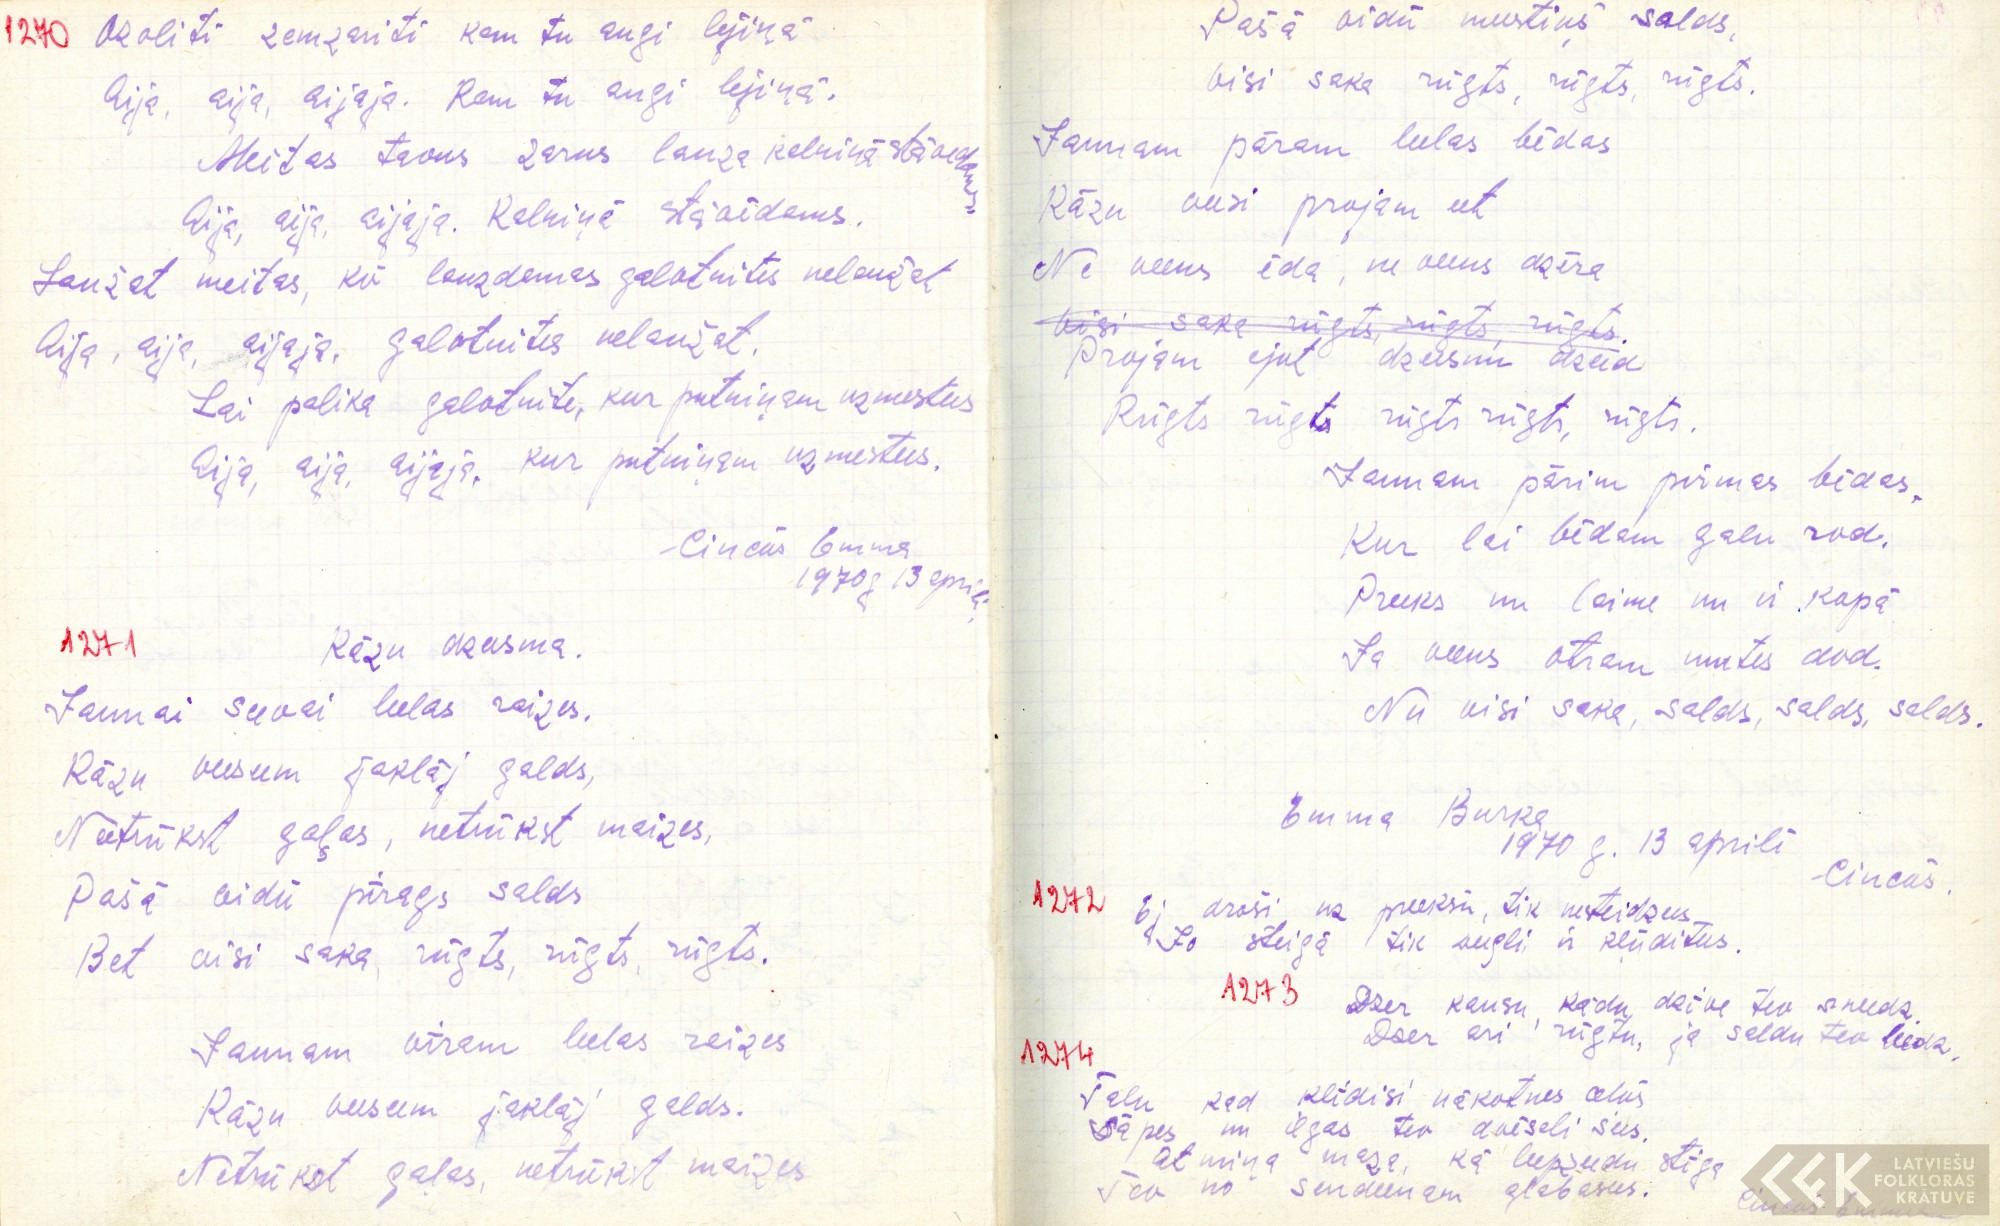 1270 Ozolīti zemzarīti kam tu augi lejiņā
Aijā, aijā, aijajā. Kam tu augi lejiņā.
Meitas tavus zarus lauza kalniņā stāvēdamas
Aijā, aijā, aijajā. Kalniņā stāvēdams.
Laužat meitas, ko lauzdamas galotnītes nelaužat
Aijā, aijā, aijajā, galotnītes nelaužat.
Lai palika galotnīte, kur putniņam uzmesties
Aijā, aijā, aijajā, kur putniņam uzmesties.
Cincās Emma
1970g 13 aprilī
1271
Kāzu dziesma.
Jaunai sievai lielas raizes.
Kāzu viesiem jāklāj galds,
Netrūkst gaļas, netrūkst maizes,
Pašā vidū pīrāgs salds
Bet visi saka, rūgts, rūgts, rūgts.
Jaunam vīram lielas raizes
Kāzu viesiem jāklāj galds.
Netrūkst gaļas, netrūkst maizes
Pašā vidū miestiņš salds,
visi saka rūgts, rūgts, rūgts.
Jaunam pāram lielas bēdas
Kāzu viesi projam iet
Ne viens ēda, ne viens dzēra
visi saka rūgts, rūgts, rūgts.
Projām ejot dziesmu dzied
Rūgts rūgts rūgts rūgts, rūgts.
Jaunam pārim pirmas bēdas,
Kur lai bēdām galu rod.
Prieks un laime nu ir kopā
Ja viens otram mutes dod.
Nu visi saka, salds, salds, salds.
Emma Burka
1970 g. 13 aprilī
Cincās.
1272 Ej droši uz priekšu, tik nesteidzies
Jo steigā tik viegli ir kļūdīties.
1273 Dzer kausu, kādu dzīve tev sniedz.
Dzer arī rūgtu, ja saldu tev liedz.
1274
Tālu kad klīdīsi nākotnes ceļos
Sāpes un ilgas tev dvēselī sies.
Atmiņa maza, kā liepziedu stīga
Tev no sendienām glabāsies.
Cincās Emma
LATVIEŠU
FOLKLORAS
KRĀTUVE